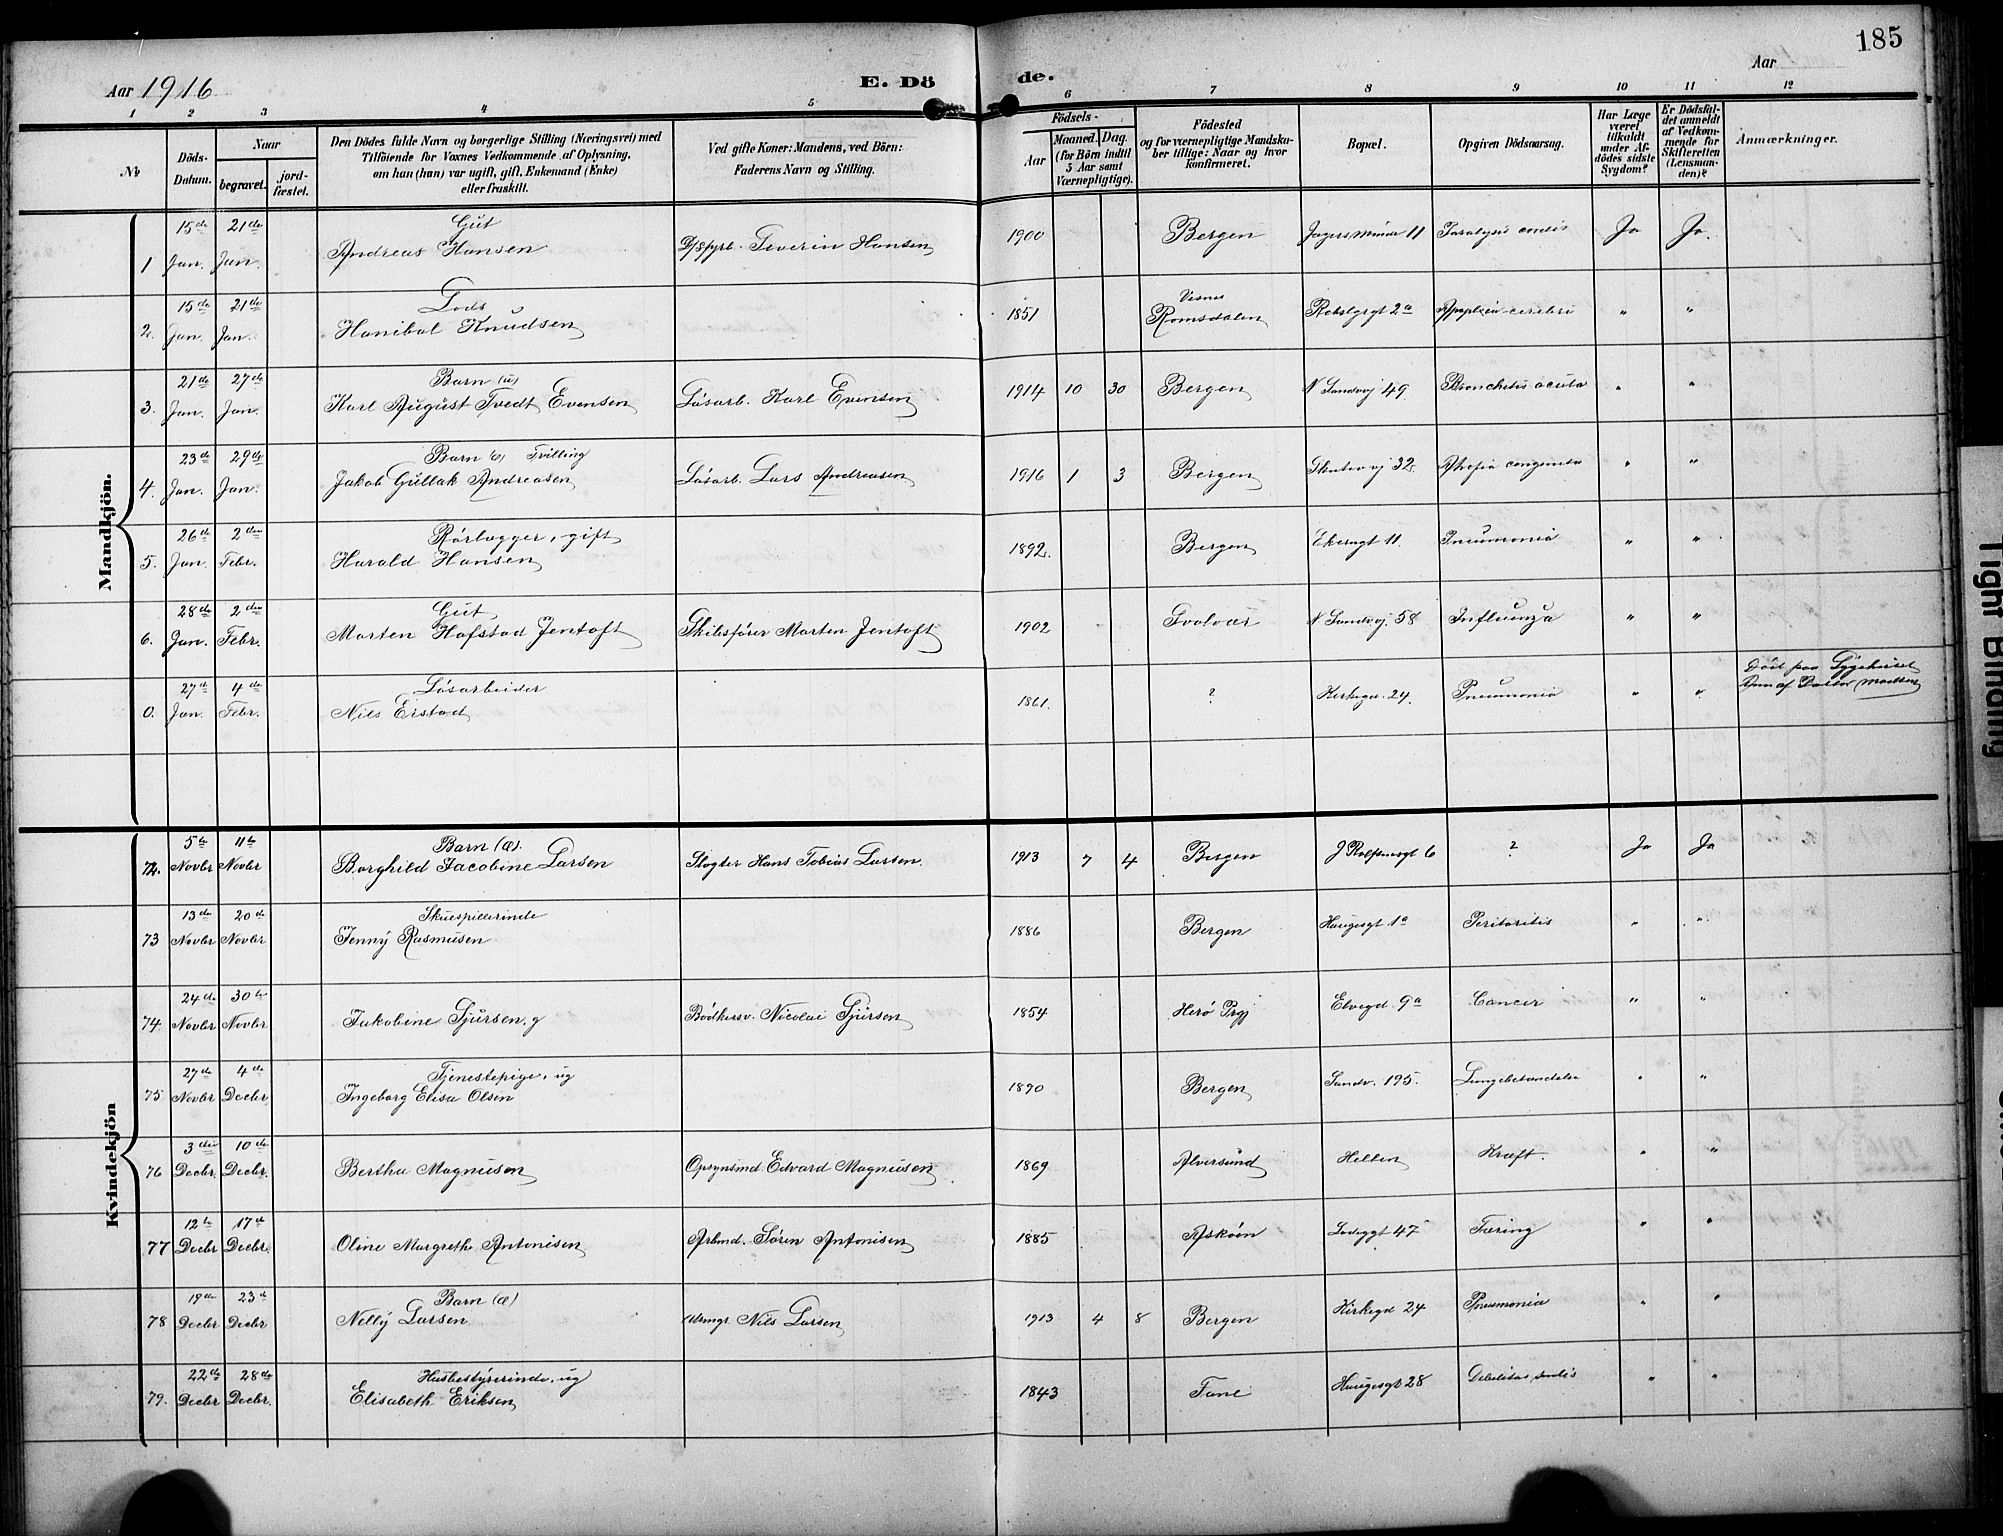 185
Aar 1916
E. Dö de.
Aar
1 2 3 4 5 6 7 8 9 10 11 12
No
Döds-Datum.
Naar
begravet. jord-fæstet.
Den Dödes fulde Navn og borgerlige Stilling (Næringsvei) med
Tilföiende for Voxnes Vedkommende af Oplysning,
om han (hun) var ugift, gift, Enkemand (Enke)
eller fraskilt.
Ved gifte Koner: Mandens, ved Börn:
Faderens Navn og Stilling.
Födsels-
Aar Maaned. Dag.
(for Börn indtil
5 Aar samt
Værnepligtige).
Födested
og for værnepligtige Mandska-
ber tillige: Naar og hvor
konfirmeret.
Bopæl.
Opgiven Dödsaarsag.
Har Læge
været
tilkaldt
under Af-
dödes sidste
Sygdom?
Er Dödsfal-
det anmeldt
af Vedkom-
mende for
Skifteretten
(Lensman-
den)?
Anmærkninger.
Mandkjön.
15de 21de Gut
1 Jan. Jan. Andreas Hansen Severin Hansen 1900 Bergen 11 Ja Ja.
15de 21de Lods
2. Jan. Jan. Hanibal Knudsen 1851 Romsdalen 2a Apoplexia cerebri " "
21de 27de Barn (u)
3. Jan. Jan. Karl August Tvedt Evensen Løsarb. Karl Evensen 1914 10 30 Bergen N Sandvj 49 Bronchitis acuta " "
23de 29de Barn Tvilling
4. Jan. Jan. Jakob Gullak Andreasen Løsarb. Lars Andreasen 1916 1 3 Bergen Skutevvj 32 congenita " "
26de 2den Rørlægger, gift
5. Jan. Febr. Harald Hansen 1892 Bergen 11. Pneumonia " "
28de 2den Gut
6. Jan. Febr. Morten Hofstad Jentoft Skibsfører Morten Jentoft 1902 Svolvær N Sandvj. 58 Influenza " "
27de 4de Løsarbeider
0. Jan. Febr. Nils Eistad 1861. ? Kirkegd. 24. Pneumonia " " Død paa Sygehuset
Kvindekjön
5te 11te Barn (æ).
72. Novbr Novbr Borghild Jacobine Larsen Slagter Hans Tobias Larsen. 1913 7 4 Bergen 6 ? Ja Ja
13de 20de Skuespillerinde
73 Novbr Novbr Jenny Rasmusen 1886 Bergen Haugesgt 1a " "
24de 30te
74 Novbr Novbr Jakobine Sjursen. g Bødkersv. Nicolai Sjursen 1854 Herø Prgj Elvegd 9a Cancer " "
27de 4de Tjenestepige, ug
75. Novbr Decbr Ingeborg Elisa Olsen 1890 Bergen Sandv. 195. Lungebetændelse " "
3die 10de
76 Decbr. Decbr. Bertha Magnusen Opsynsmd Edvard Magnusen 1869 Alversund Hellen Kræft. " "
12te 17de
77 Decbr Decbr. Oline Margrethe Antonisen Arbmd. Søren Antonisen 1885 Askøen 47 Tæring " "
19de 23de Barn (æ)
78 Decbr Decbr Nelly Larsen Nils Larsen 1913 4 8 Bergen Kirkegd 24 Pneumonia " "
22de 28de Husbestyrerinde, ug
79. Decbr Decbr. Elisabeth Eriksen 1843 Fane Haugesgt 28 Debilitas senilis " "
Tight Binding